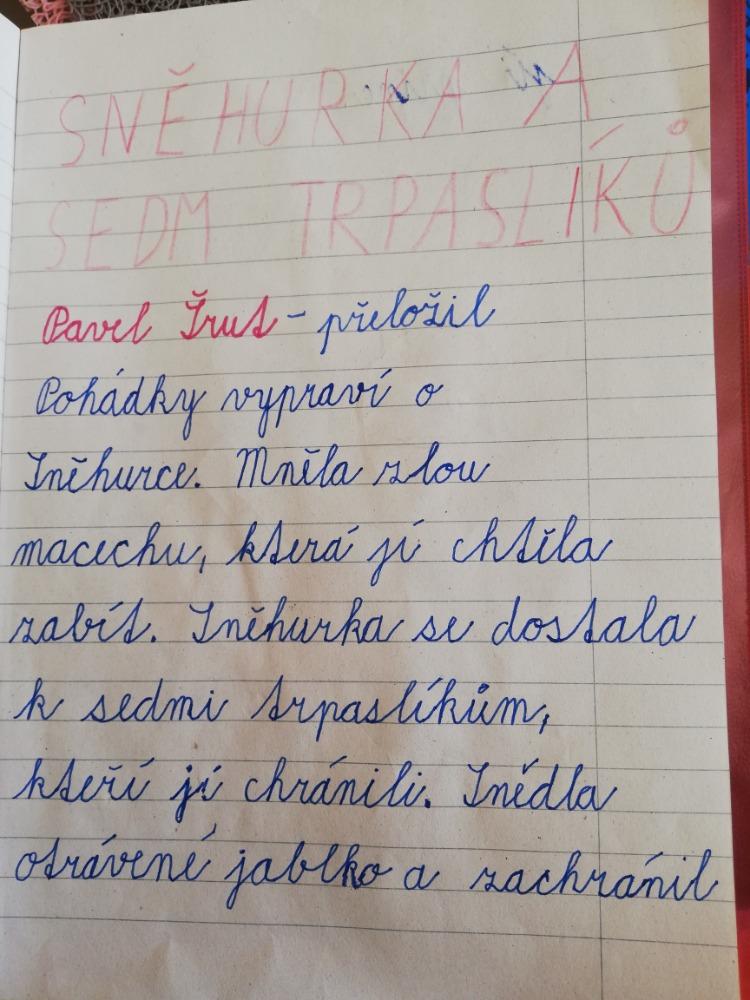 SNĚHURKA A
SEDM TRPASLÍKŮ
Pavel Šrut - přeložil
Pohádky vypraví o
Sněhurce. Mněla zlou
macechu, která jí chtěla
zabít. Sněhurka se dostala
k sedmi trpaslíkům,
kteří jí chránili. Snědla
otrávené jablko a zachránil